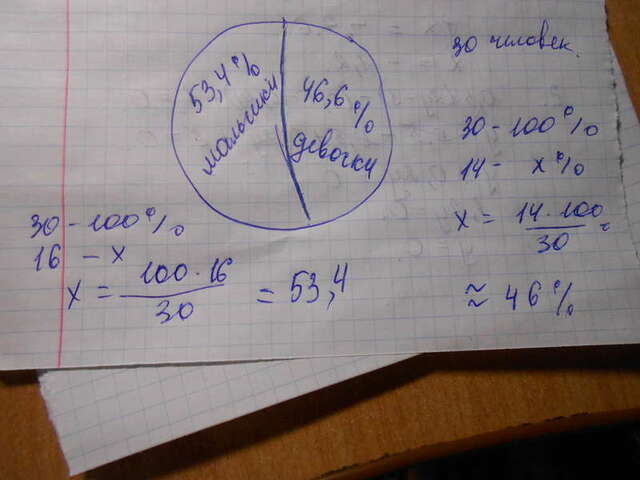 30 человек.
53,4%
мальчики
46,6%
девочки
30 - 100%
14 - x%
x = 14 · 100 / 30 =
≈ 46%
30 - 100%
16 - x
x = 100 · 16 / 30 = 53,4